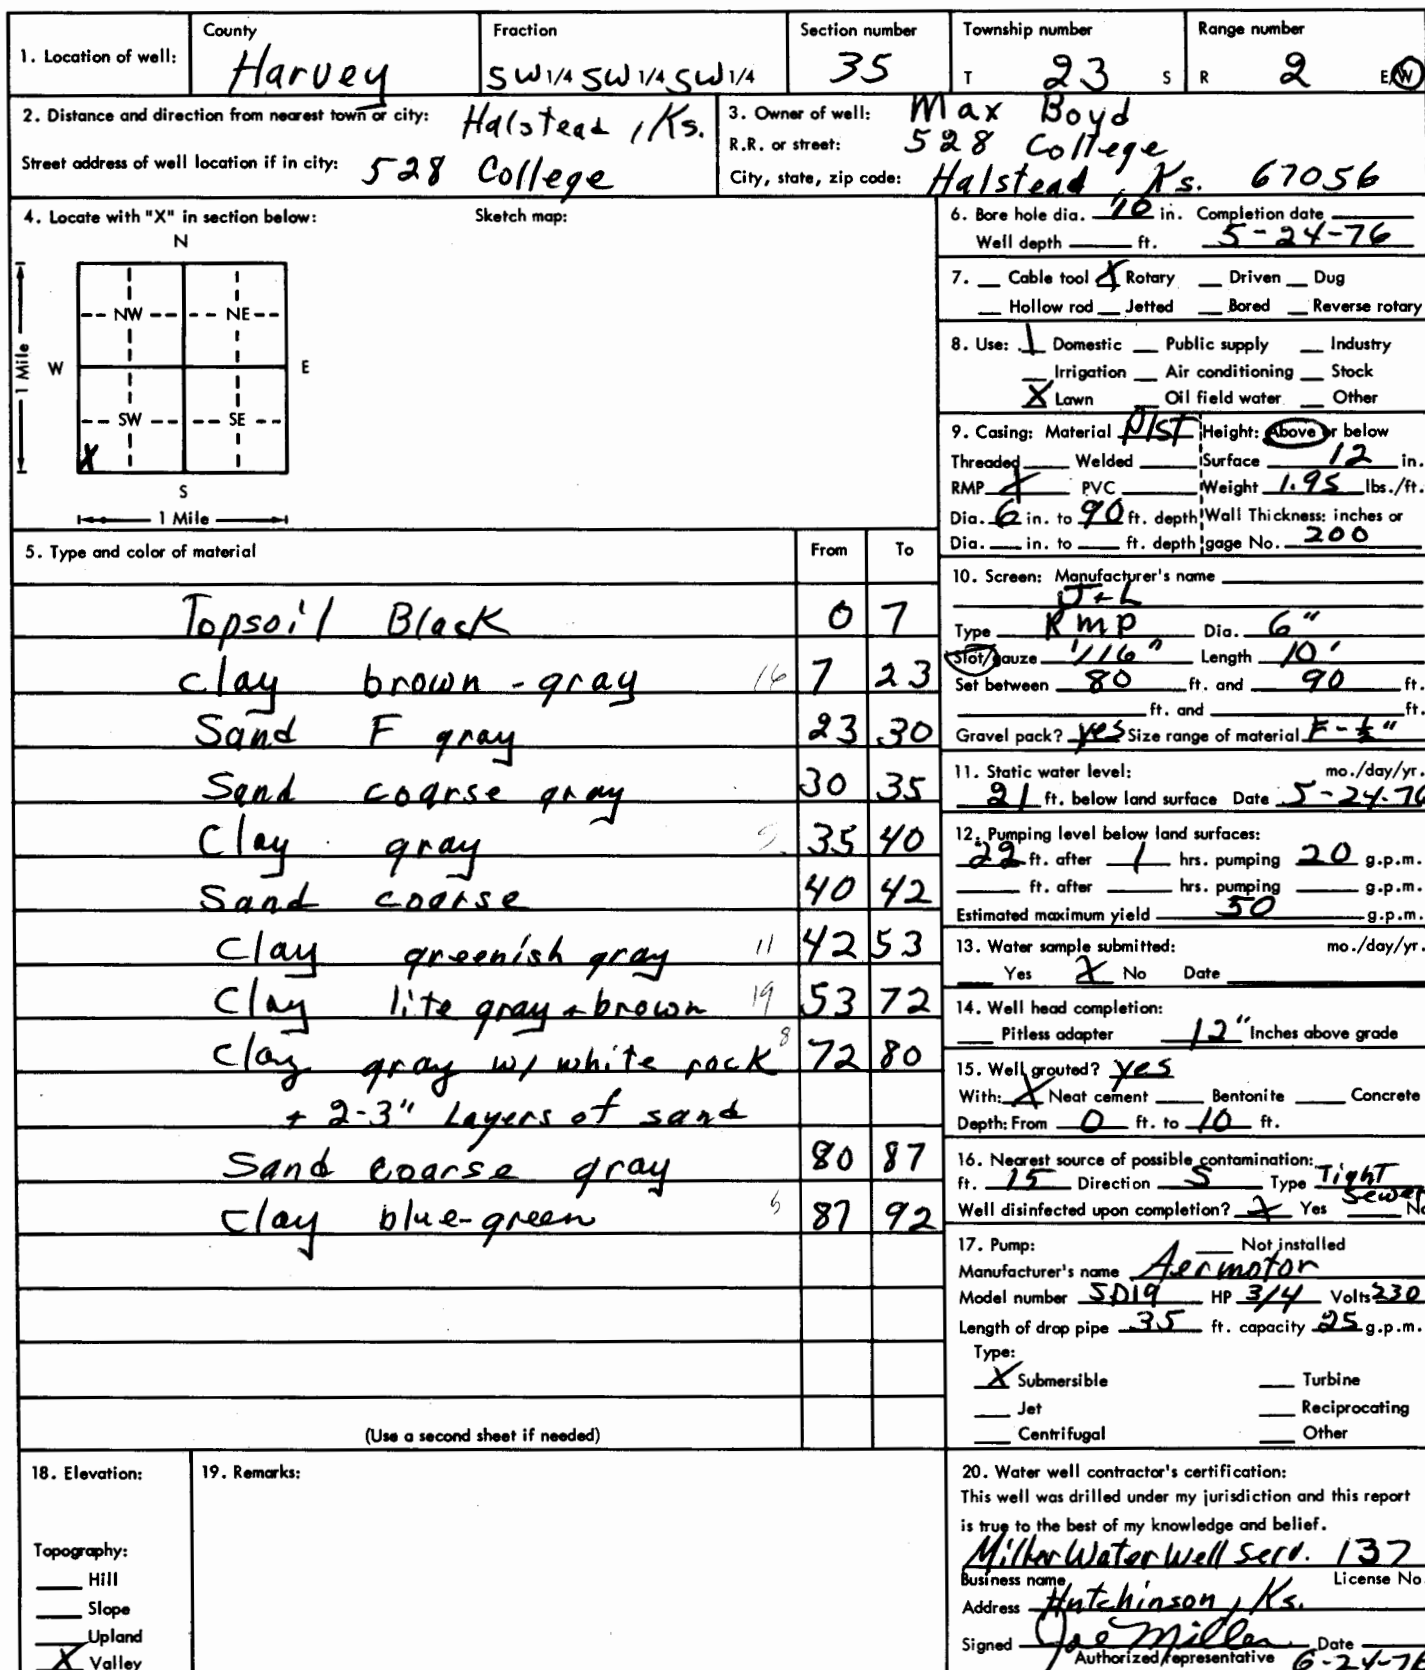 1. Location of well: County Harvey Fraction SW 1/4 SW 1/4 SW 1/4 Section number 35 Township number T 23 S Range number R 2 E/W
2. Distance and direction from nearest town or city: Halstead, Ks.
Street address of well location if in city: 528 College
3. Owner of well: Max Boyd
R.R. or street: 528 College
City, state, zip code: Halstead, Ks. 67056
4. Locate with "X" in section below: Sketch map:
N
NW NE
W E
1 Mile
SW SE
X
S
1 Mile
5. Type and color of material From To
Topsoil Black 0 7
Clay brown-gray 16 7 23
Sand F gray 23 30
Sand coarse gray 30 35
Clay gray 35 40
Sand coarse 40 42
Clay greenish gray 11 42 53
Clay lite gray + brown 19 53 72
Clay gray w/ white rock 8 72 80
+ 2-3" Layers of sand
Sand coarse gray 80 87
Clay blue-green 87 92
(Use a second sheet if needed)
6. Bore hole dia. 10 in. Completion date
Well depth ft. 5-24-76
7. Cable tool X Rotary Driven Dug
Hollow rod Jetted Bored Reverse rotary
8. Use: Domestic Public supply Industry
Irrigation Air conditioning Stock
X Lawn Oil field water Other
9. Casing: Material Plst Height: Above or below
Threaded Welded Surface 12 in.
RMP X PVC Weight 1.95 lbs./ft.
Dia. 6 in. to 90 ft. depth Wall Thickness: inches or
Dia. in. to ft. depth gage No. 200
10. Screen: Manufacturer's name
J+L
Type RMP Dia. 6"
Slot/gauze 1/16" Length 10'
Set between 80 ft. and 90 ft.
ft. and ft.
Gravel pack? yes Size range of material F-½"
11. Static water level: mo./day/yr.
21 ft. below land surface Date 5-24-76
12. Pumping level below land surfaces:
22 ft. after 1 hrs. pumping 20 g.p.m.
ft. after hrs. pumping g.p.m.
Estimated maximum yield 50 g.p.m.
13. Water sample submitted: mo./day/yr.
Yes X No Date
14. Well head completion:
Pitless adapter 12" Inches above grade
15. Well grouted? yes
With: X Neat cement Bentonite Concrete
Depth: From 0 ft. to 10 ft.
16. Nearest source of possible contamination:
ft. 15 Direction S Type Tight Sewer
Well disinfected upon completion? X Yes No
17. Pump: Not installed
Manufacturer's name Aermotor
Model number SD19 HP 3/4 Volts 230
Length of drop pipe 35 ft. capacity 25 g.p.m.
Type:
X Submersible Turbine
Jet Reciprocating
Centrifugal Other
18. Elevation:
Topography:
Hill
Slope
Upland
X Valley
19. Remarks:
20. Water well contractor's certification:
This well was drilled under my jurisdiction and this report
is true to the best of my knowledge and belief.
Miller Water Well Serv. 137
Business name License No.
Address Hutchinson, Ks.
Signed Joe Miller Date
Authorized representative 6-24-76